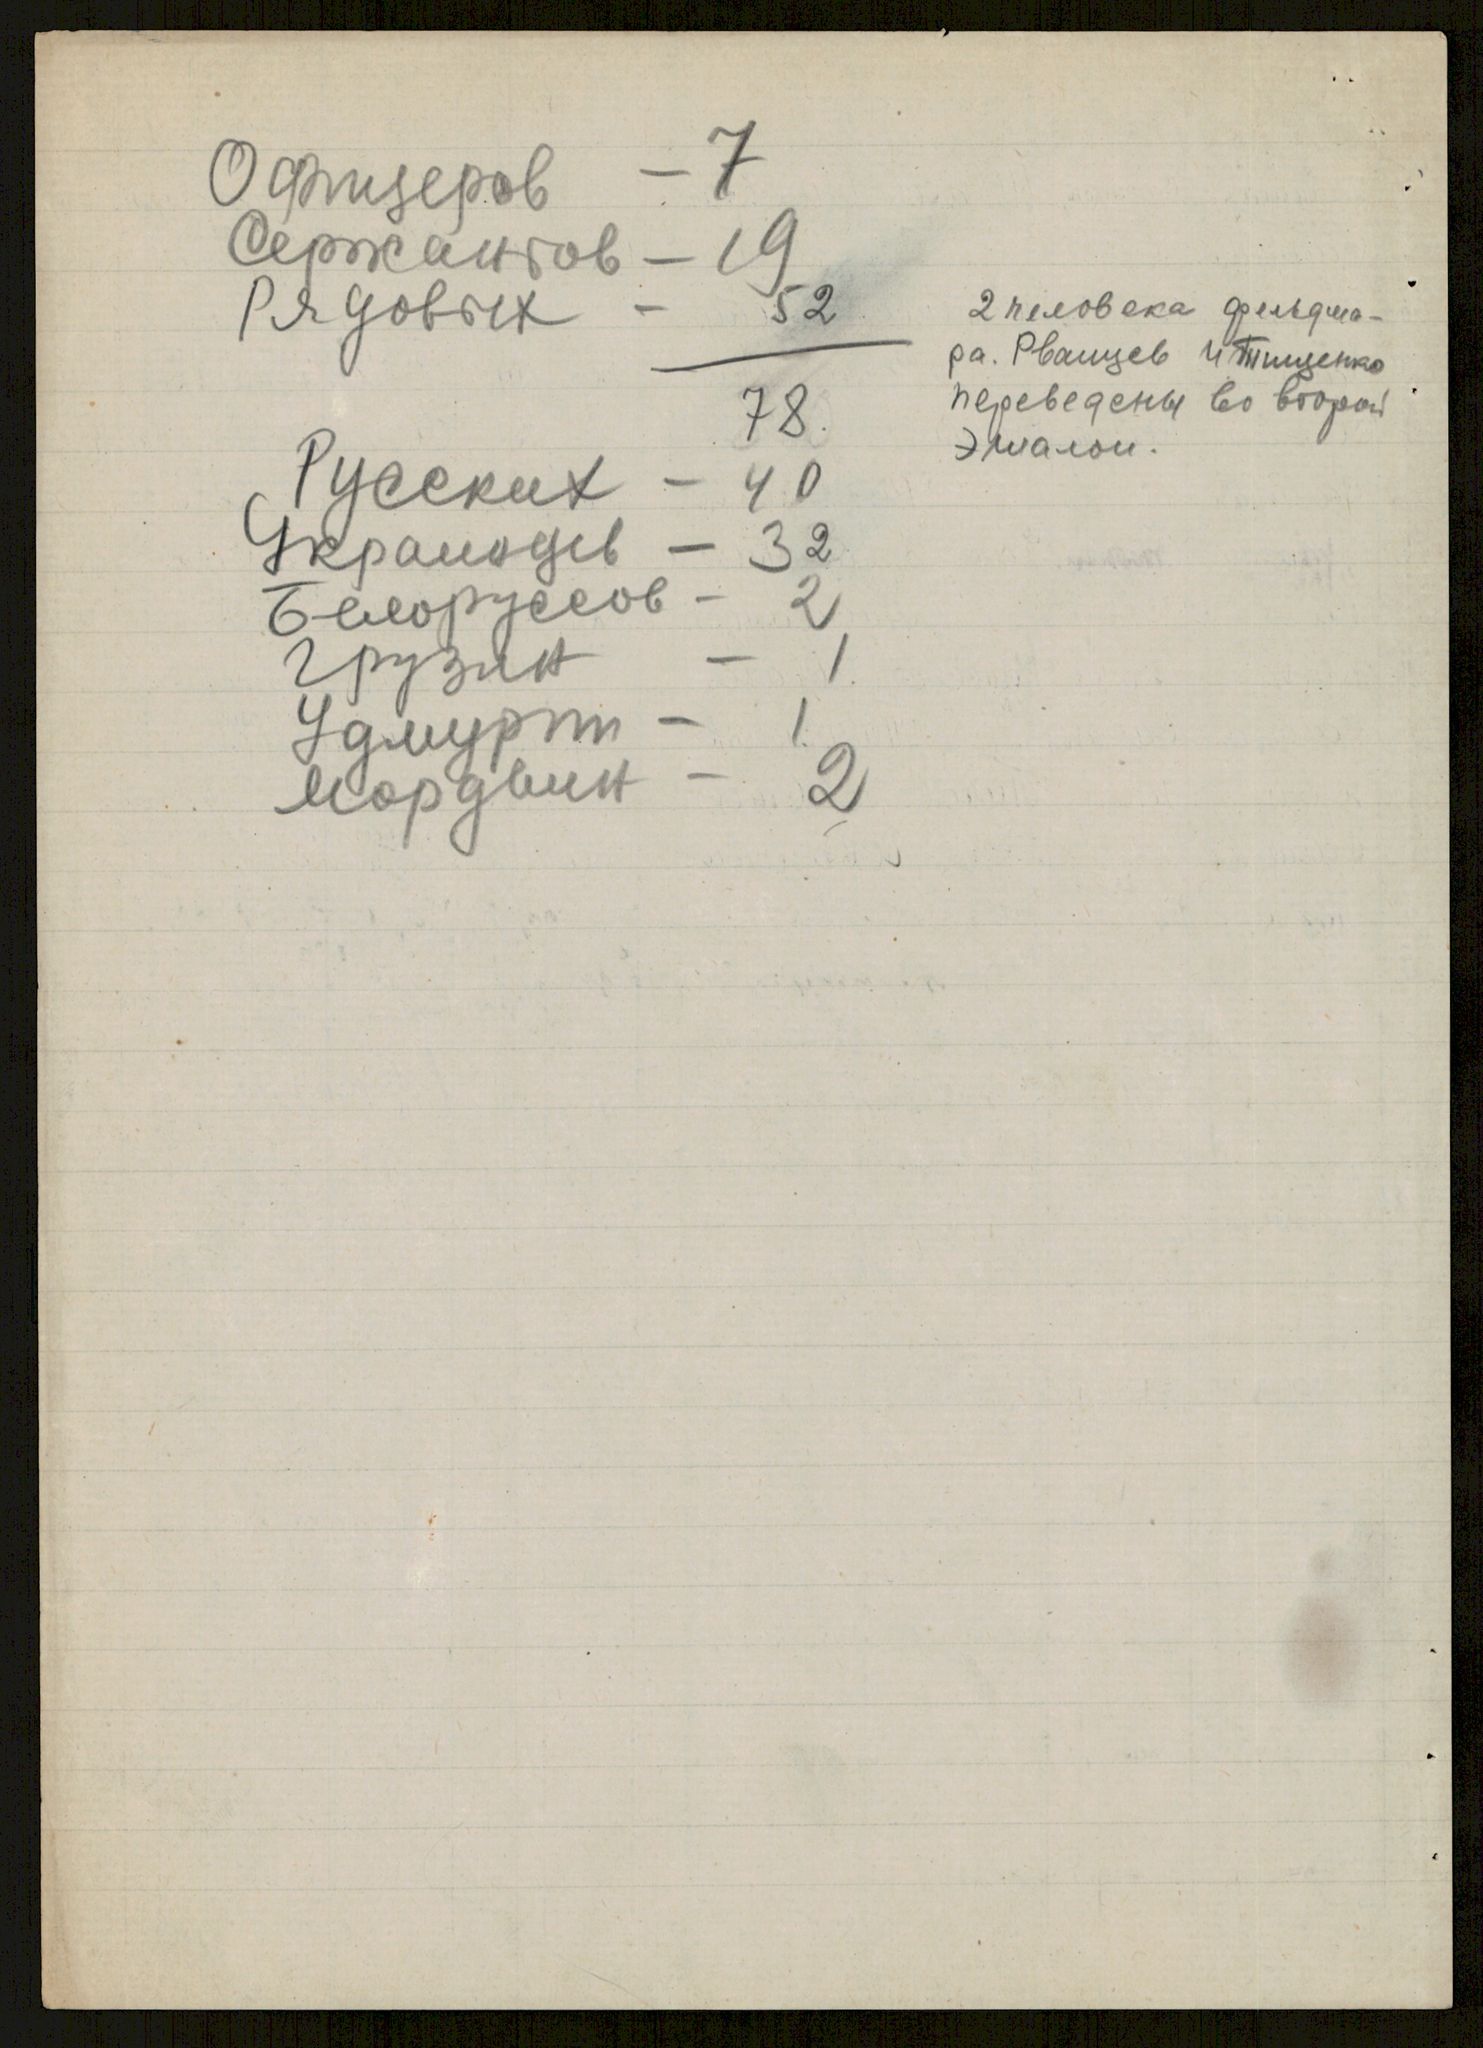 Офицеров - 7
Сержантов - 19
Рядовых - 52
78.
Русских - 40
Украинцев - 32
Белоруссов - 2
Грузин - 1
Удмурт - 1
Мордвин - 2
2 человека фельдше-
ра. Рванцев и Тищенко
переведены во второй
эшалон.